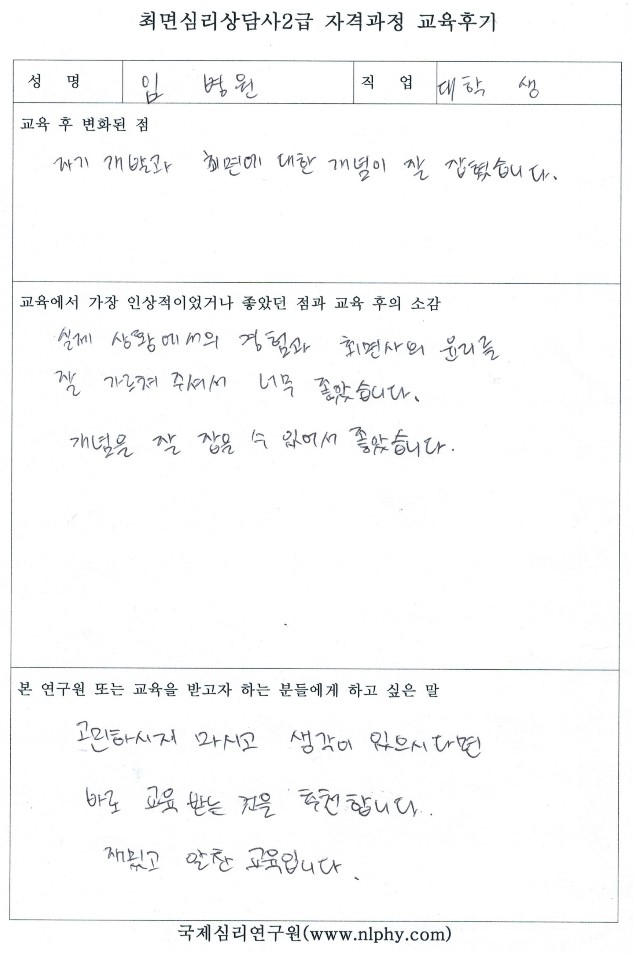 최면심리상담사2급 자격과정 교육후기
성 명 임 병원 직 업 대학 생
교육 후 변화된 점
자기 개발과 최면에 대한 개념이 잘 잡혔습니다.
교육에서 가장 인상적이었거나 좋았던 점과 교육 후의 소감
실제 상황에서의 경험과 최면사의 윤리를
잘 가르쳐 주셔서 너무 좋았습니다.
개념을 잘 잡을 수 있어서 좋았습니다.
본 연구원 또는 교육을 받고자 하는 분들에게 하고 싶은 말
고민하시지 마시고 생각이 있으시다면
바로 교육 받는 것을 추천합니다.
재밌고 알찬 교육입니다.
국제심리연구원(www.nlphy.com)